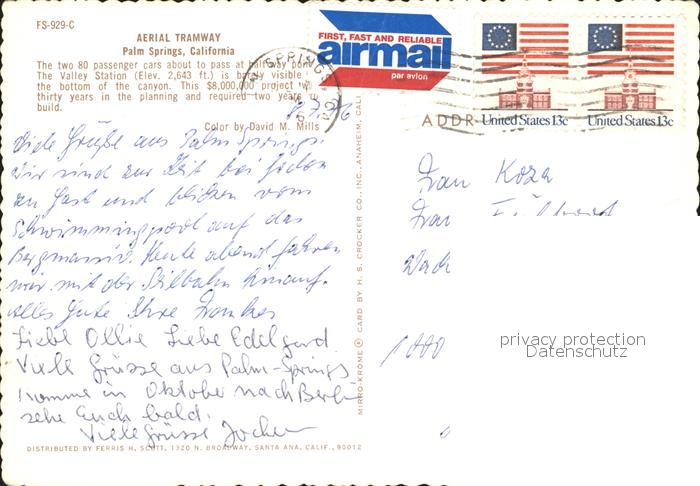 FS-929-C
AERIAL TRAMWAY
Palm Springs, California
The two 80 passenger cars about to pass at halfway point.
The Valley Station (Elev. 2,643 ft.) is barely visible
the bottom of the canyon. This $8,000,000 project
thirty years in the planning and required two years
build.
Color by David M. Mills
FIRST, FAST AND RELIABLE
airmail
par avion
SPRINGS
ADDR
United States 13c
United States 13c
Viele Grüße aus Palm Springs.
Wir sind zur Zeit bei Jochen
zu Gast und blicken vom
Schwimmingpool auf das
Bergmassiv. Heute abend fahren
wir mit der Seilbahn hinauf.
Alles Gute Ihre
Liebe Ollie Liebe Edelgard
Viele Grüsse aus Palm-Springs
komme in Oktober nach Berlin
sehe Euch bald.
Viele Grüsse Jochen
DISTRIBUTED BY FERRIS H. SCOTT, 1320 N. BROADWAY, SANTA ANA, CALIF., 90012
MIRRO-KROME® CARD BY H. S. CROCKER CO., INC., ANAHEIM, CALI
Frau Koza
Frau
1000
privacy protection
Datenschutz